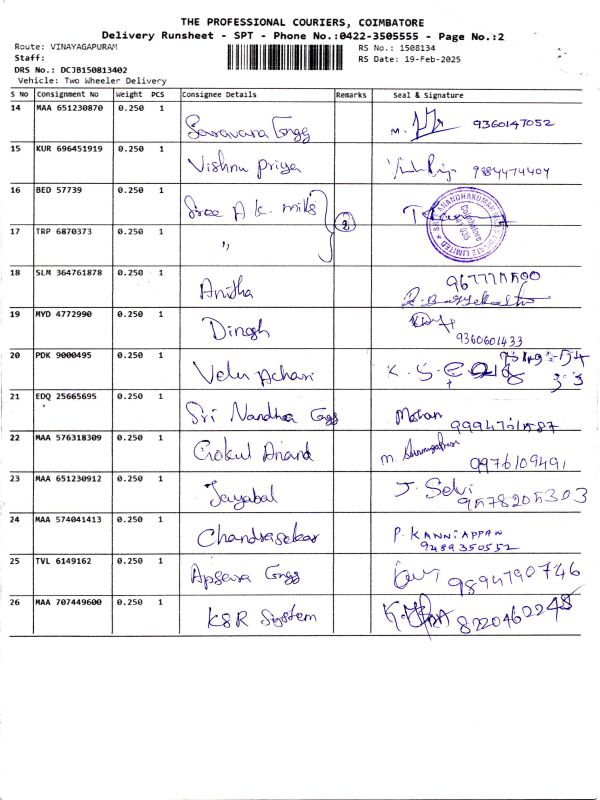 THE PROFESSIONAL COURIERS, COIMBATORE
Delivery Runsheet - SPT - Phone No.:0422-3505555 - Page No.:2
Route: VINAYAGAPURAM RS No.: 1508134
Staff: RS Date: 19-Feb-2025
DRS No.: DCJB150813402
Vehicle: Two Wheeler Delivery
S No Consignment No Weight PCS Consignee Details Remarks Seal & Signature
14 MAA 651230870 0.250 1 Saravana Engg M. 9360147052
15 KUR 696451919 0.250 1 Vishnu priya 9884474404
16 BED 57739 0.250 1 Sree A.K. mills 2
17 TRP 6870373 0.250 1 "
18 SLM 364761878 0.250 1 Anitha
19 MYD 4772990 0.250 1 Dinesh 9360601433
20 PDK 9000495 0.250 1 Velu Achari K. S.
21 EDQ 25665695 0.250 1 Sri Nandha Engg Mohan 9994701587
22 MAA 576318309 0.250 1 Gokul Anand M. 9976109491
23 MAA 651230912 0.250 1 Jayabal J. Selvi 9578205303
24 MAA 574041413 0.250 1 Chandrasekar P. KANNIAPPAN 9489350552
25 TVL 6149162 0.250 1 Apsera Engg 9894790746
26 MAA 707449600 0.250 1 KSR System 8220462248